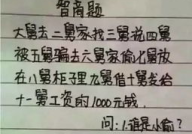 智商题
大舅去二舅家找三舅说四舅
被五舅骗去六舅家偷七舅放
在八舅柜里九舅借十舅发给
十一舅工资的1000元钱.
问:1.谁是小偷?